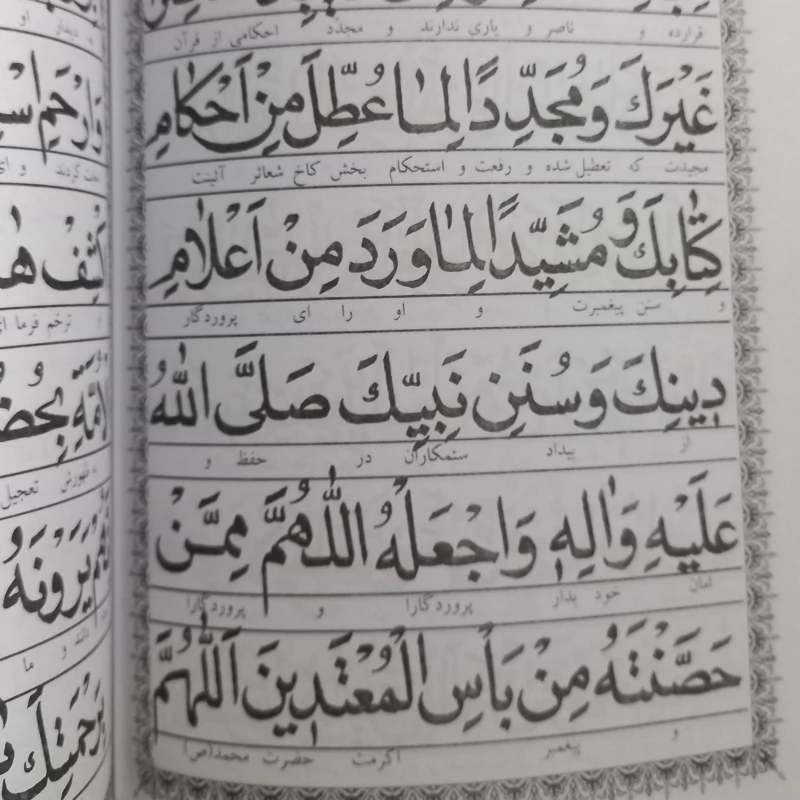 قرارده و ناصر و یاری ندارند و مجدّد احکامی از قرآن
غَيْرَكَ وَمُجَدِّدًا لِمٰا عُطِّلَ مِنْ اَحْكٰامِ
مجیدت که تعطیل شده و رفعت و استحکام بخش کاخ شعائر آئینت
كِتٰابِكَ وَ مُشَيِّدًا لِمٰا وَرَدَ مِنْ اَعْلٰامِ
و سنن پیغمبرت و او را ای پروردگار
دِينِكَ وَسُنَنِ نَبِيِّكَ صَلَّى اللّٰهُ
از بیداد ستمکاران در حفظ و
عَلَيْهِ وَاٰلِهِ وَاجْعَلْهُ اللّٰهُمَّ مِمَّنْ
امان خود بدار پروردگارا و پروردگارا
حَصَّنْتَهُ مِنْ بَأْسِ الْمُعْتَدِينَ اَللّٰهُمَّ
و پیغمبر اکرمت حضرت محمد(ص)
وَارْحَمِ
و ای
اكْشِفْ
ترحم فرما
بِحُضُ
ظهورش تعجیل
يَرَوْنَهُ
و ما
بِرَحْمَتِكَ